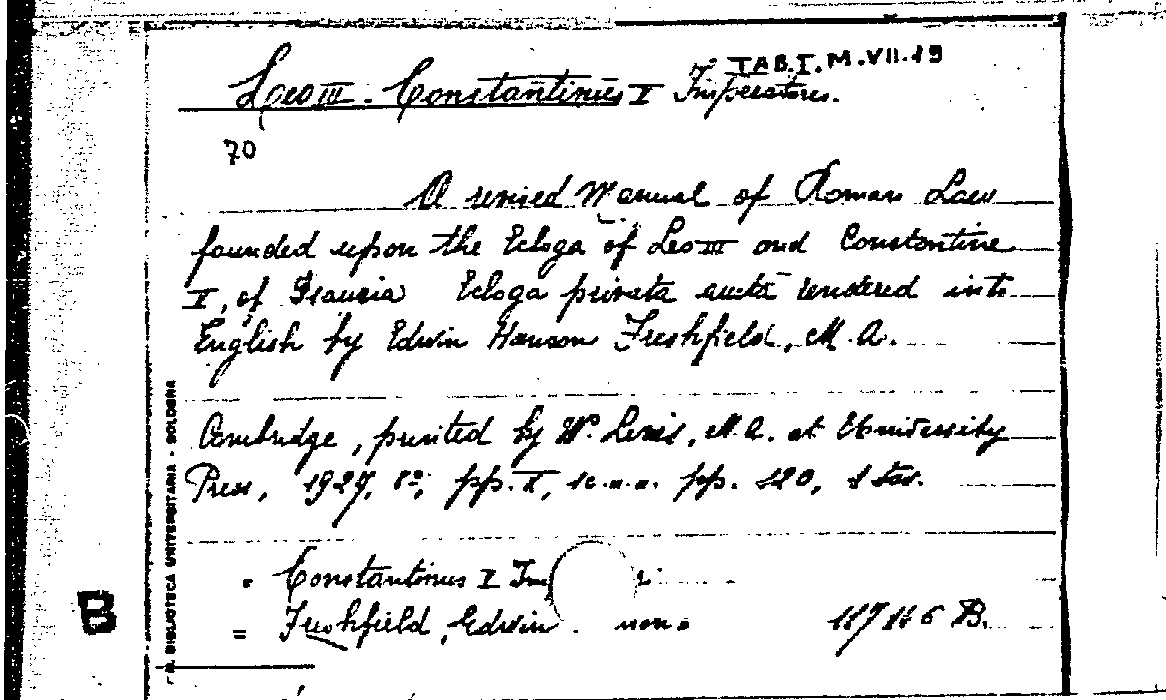 TAB.I.M.VII.19
Leo III - Constantinus V Imperatores.
70
A revised Manual of Roman Law
founded upon the Ecloga of Leo III and Constantine
V, of Isauria Ecloga privata aucta rendered into
English by Edwin Hanson Freshfield, M.A.
Cambridge, printed by W. Lewis, M.A. at University
Press, 1927, 8°, pp. X, 1 c.n.n. pp. 120, 1 tav.
R. BIBLIOTECA UNIVERSITARIA - BOLOGNA
= Constantinus V Im
B
= Freshfield, Edwin 117116 B.